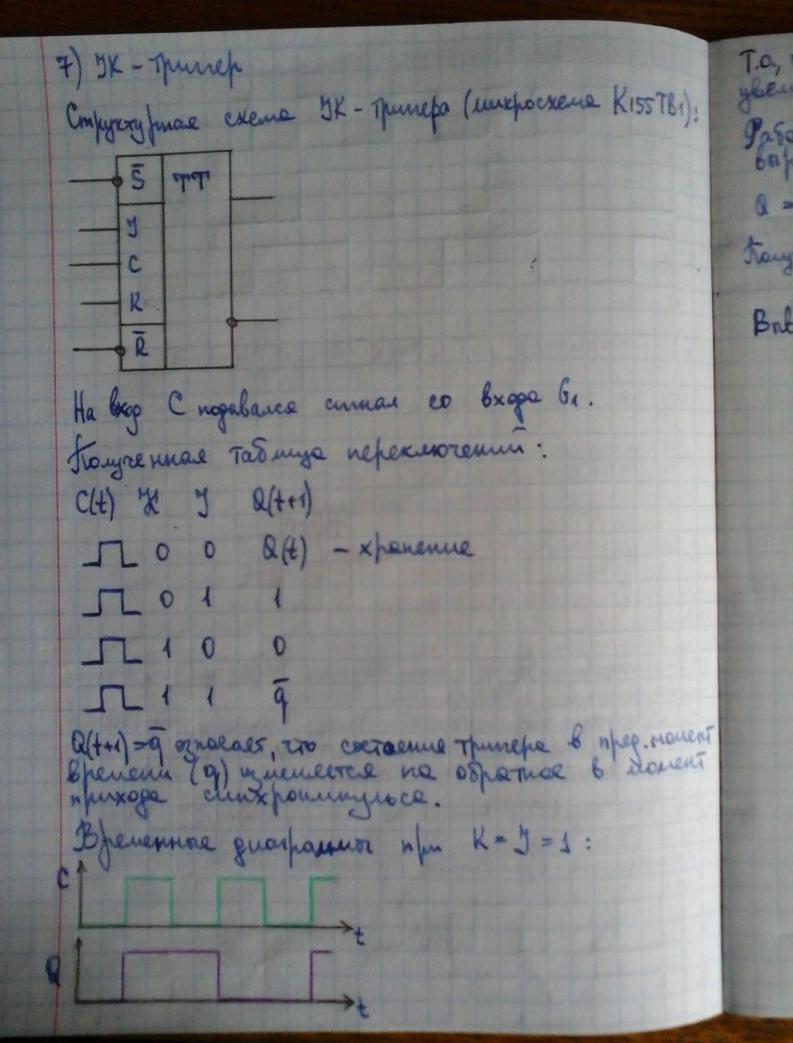 7) JK - тригер
Структурная схема JK - тригера (микросхема К155ТВ1):
S̄ TT
J
C
K
R̄
На вход C подавался сигнал со входа G1.
Полученная таблица переключений:
C(t) K J Q(t+1)
0 0 Q(t) - хранение
0 1 1
1 0 0
1 1 q̄
Q(t+1)=q̄ означает, что состояние тригера в пред. момент
времени (q) изменяется на обратное в момент
прихода синхроимпульса.
Временные диаграммы при K = J = 1:
C
t
Q
t
Т.о,
Q =